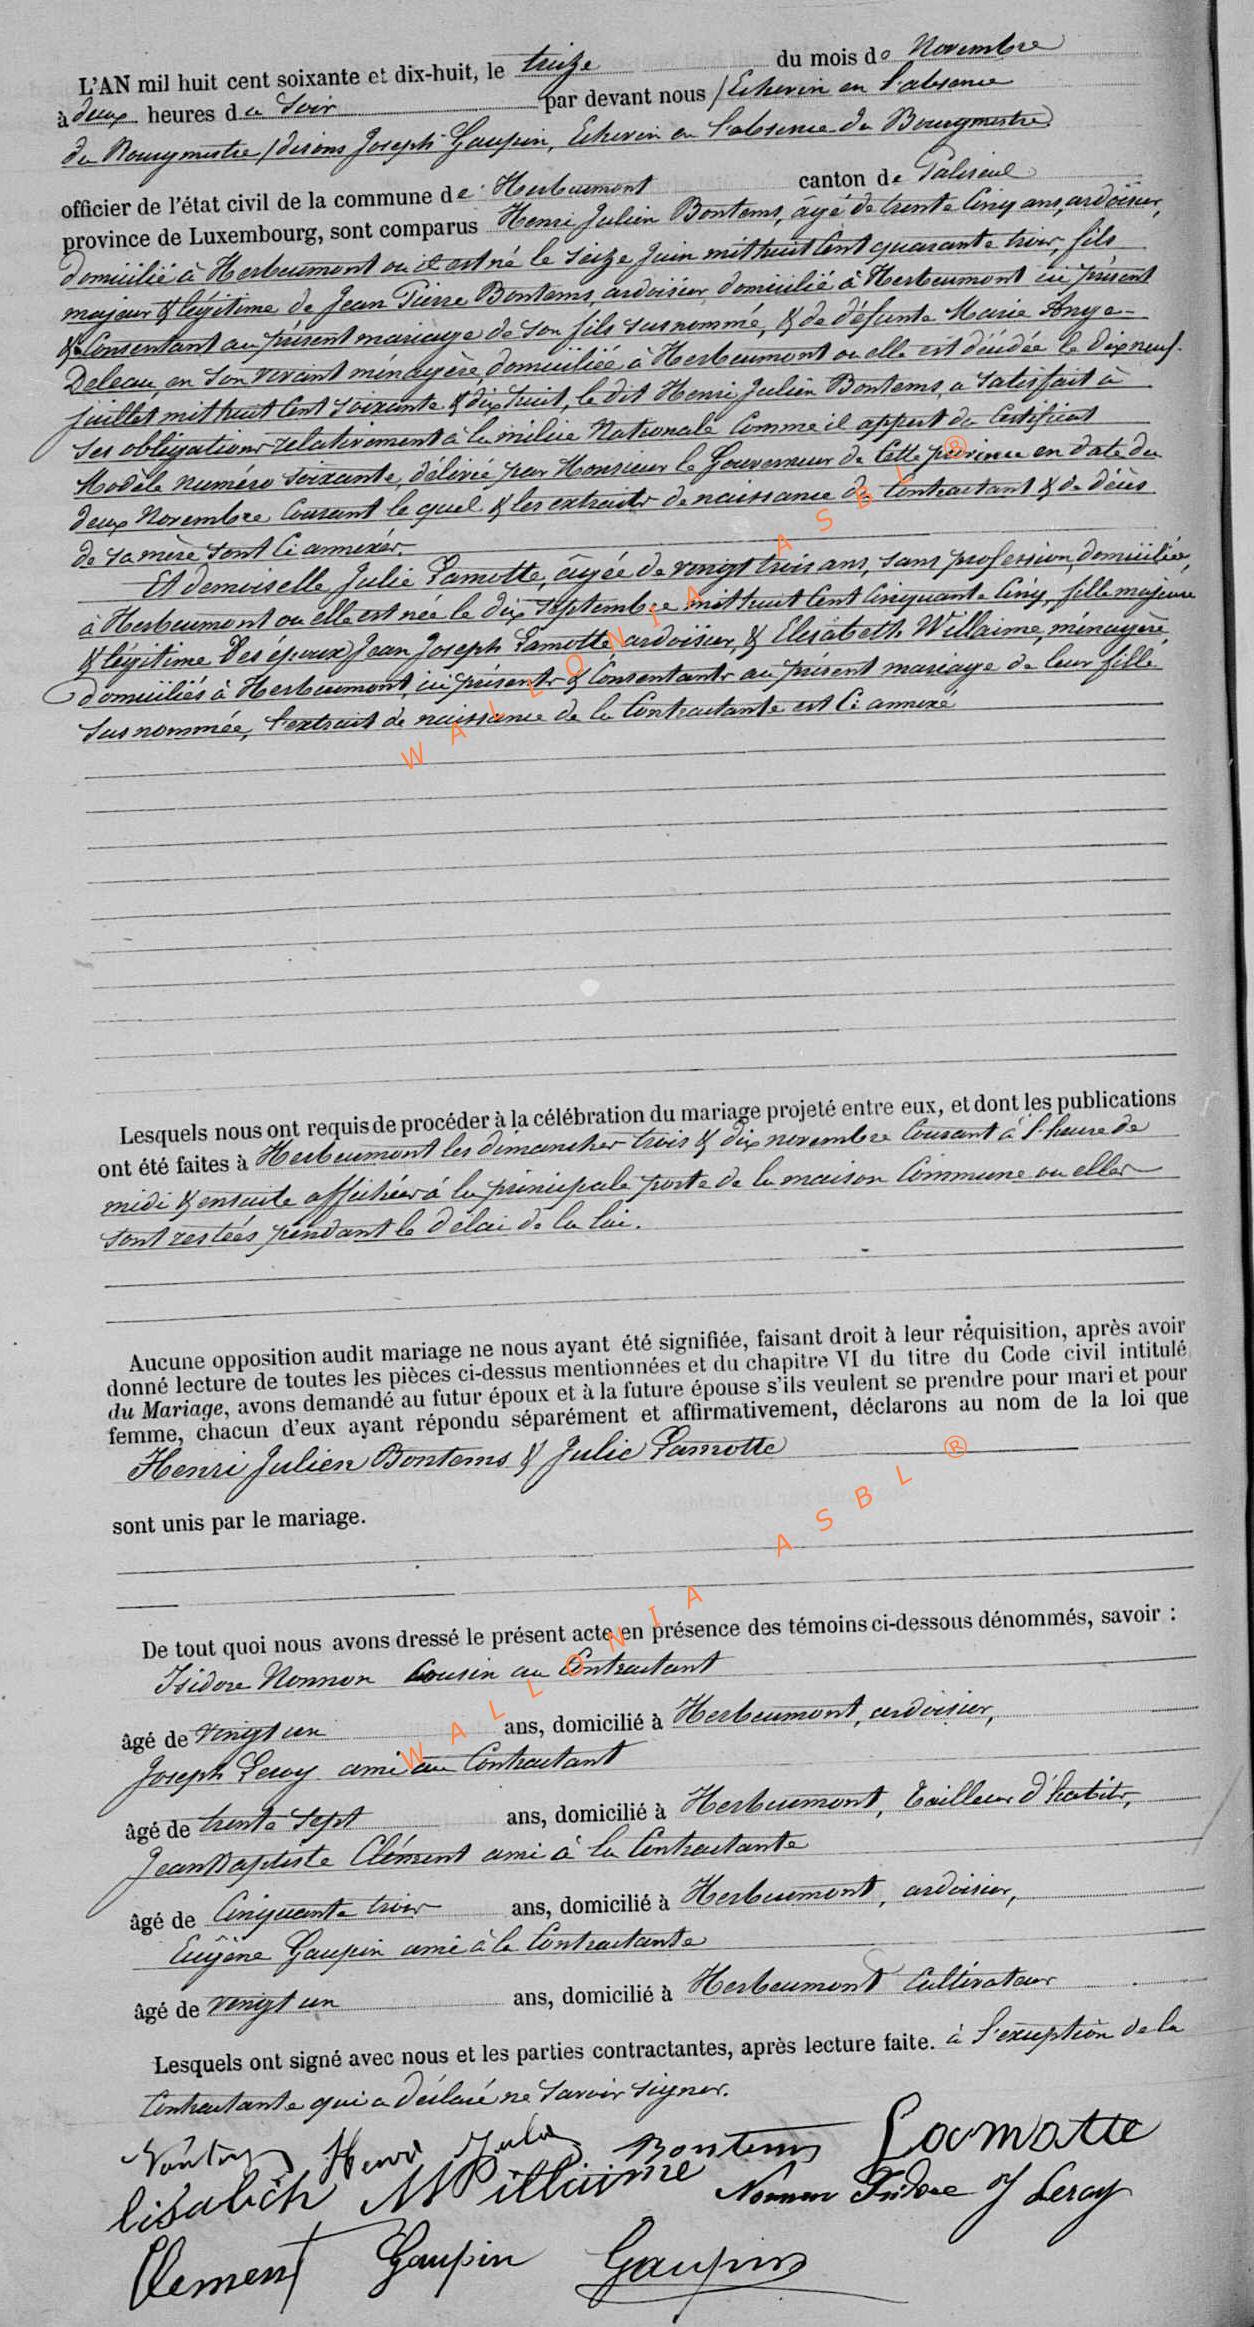 L'AN mil huit cent soixante et dix-huit, le treize du mois de Novembre
à deux heures du Soir par devant nous /Echevin en l'absence
du Bourgmestre/disons Joseph Gaupin, Echevin en l'absence du Bourgmestre
officier de l'état civil de la commune de Herbeumont canton de Paliseul
province de Luxembourg, sont comparus Henri Julien Bontems, âgé de trente cinq ans, ardoisier,
domicilié à Herbeumont où il est né le seize Juin mil huit cent quarante trois, fils
majeur & légitime de Jean Pierre Bontems, ardoisier, domicilié à Herbeumont ici présent
& Consentant au présent mariage de son fils susnommé, & de défunte Marie Ange
Deleau, en son vivant ménagère, domiciliée à Herbeumont où elle est décédée le dix neuf
juillet mil huit cent soixante & dix huit, le dit Henri Julien Bontems, a satisfait à
ses obligations relativement à la milice Nationale comme il appert du Certificat
Modèle numéro soixante, délivré par Monsieur le Gouverneur de Cette province en date du
deux Novembre Courant le quel & les extraits de naissance du Contractant & de décès
de sa mère sont Ci annexés.
Et demoiselle Julie Lamotte, âgée de vingt trois ans, sans profession, domiciliée
à Herbeumont où elle est née le dix Septembre mil huit Cent Cinquante Cinq, fille majeure
& légitime des époux Jean Joseph Lamotte, ardoisier, & Elisabeth Willaime, ménagère,
domiciliés à Herbeumont, ici présents & Consentants au présent mariage de leur fille
susnommée, l'extrait de naissance de la Contractante est Ci annexé
WALLONIA ASBL ®
Lesquels nous ont requis de procéder à la célébration du mariage projeté entre eux, et dont les publications
ont été faites à Herbeumont les dimanches trois & dix novembre Courant à l'heure de
midi & ensuite affichées à la principale porte de la maison Commune où elles
sont restées pendant le délai de la loi.
Aucune opposition audit mariage ne nous ayant été signifiée, faisant droit à leur réquisition, après avoir
donné lecture de toutes les pièces ci-dessus mentionnées et du chapitre VI du titre du Code civil intitulé
du Mariage, avons demandé au futur époux et à la future épouse s'ils veulent se prendre pour mari et pour
femme, chacun d'eux ayant répondu séparément et affirmativement, déclarons au nom de la loi que
Henri Julien Bontems & Julie Lamotte
sont unis par le mariage.
WALLONIA ASBL ®
De tout quoi nous avons dressé le présent acte en présence des témoins ci-dessous dénommés, savoir :
Isidore Nonnon Cousin au Contractant
âgé de vingt un ans, domicilié à Herbeumont, ardoisier,
Joseph Leroy ami au Contractant
âgé de trente Sept ans, domicilié à Herbeumont, tailleur d'habits,
Jean Baptiste Clément ami à la Contractante
âgé de Cinquante trois ans, domicilié à Herbeumont, ardoisier,
Eugène Gaupin ami à la Contractante
âgé de vingt un ans, domicilié à Herbeumont Cultivateur
Lesquels ont signé avec nous et les parties contractantes, après lecture faite. à l'exception de la
Contractante qui a déclaré ne savoir signer.
Henri Bontems Lamotte
lisabeth Willaime Nonnon Isidore J Leroy
Clement Gaupin Gaupin